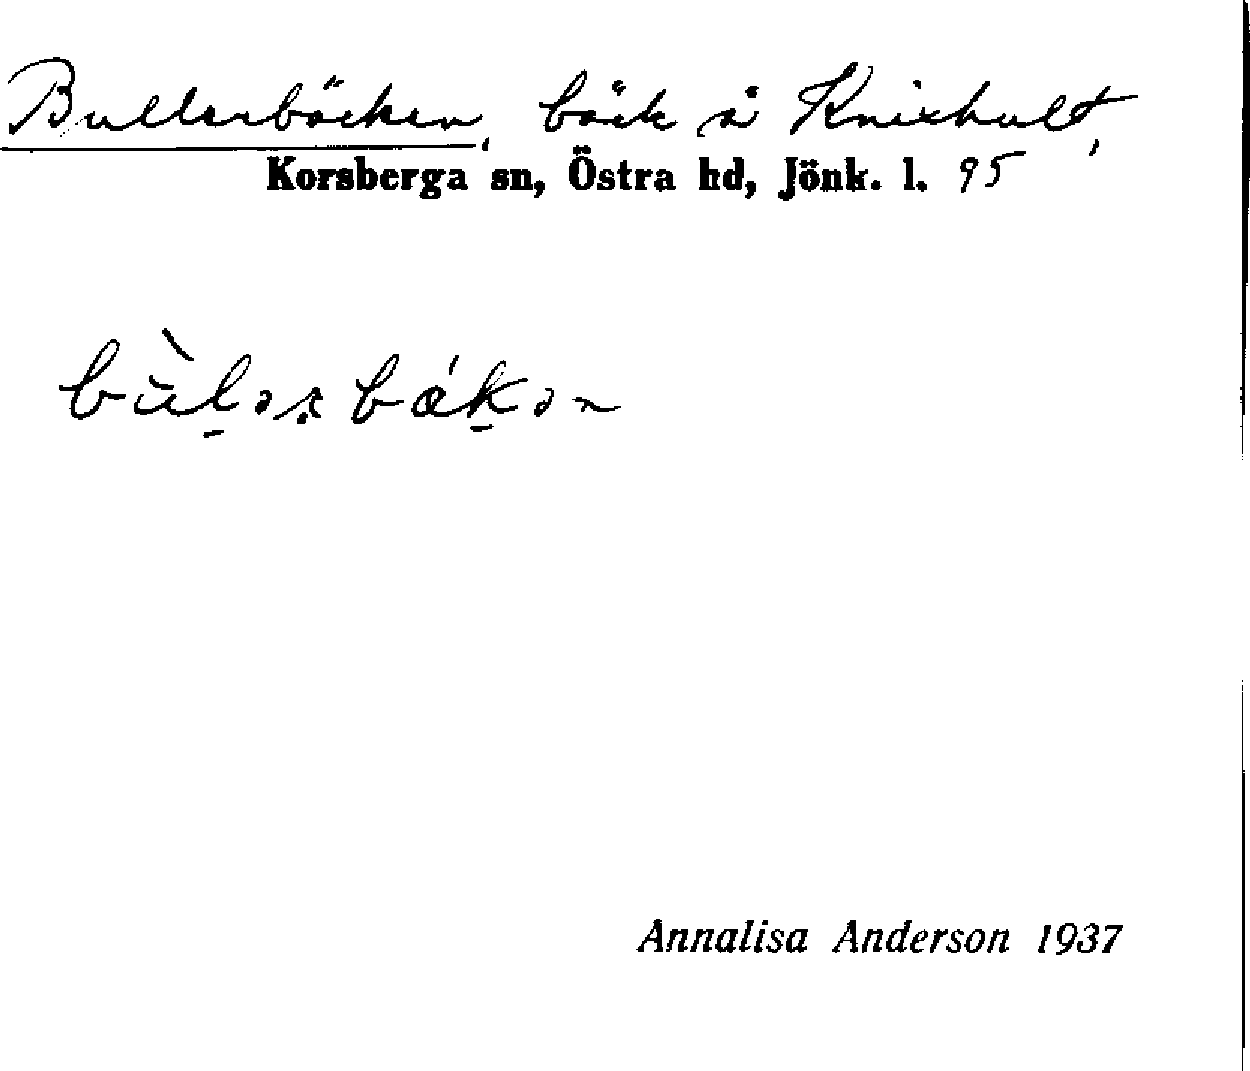 Bullerbäcken, bäck å Knixhult,
Korsberga sn, Östra hd, Jönk. l. 95
Annalisa Anderson 1937